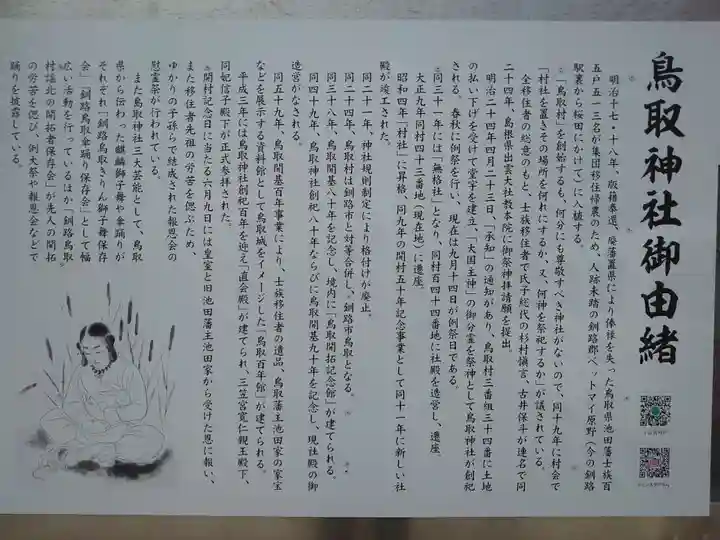 鳥取神社御由緒
明治十七・十八年、版籍奉還、廃藩置県により俸禄を失った鳥取県池田藩士族百
五戸五一三名が集団移住帰農のため、人跡未踏の釧路郡ベットマイ原野（今の釧路
駅裏から桜田にかけて）に入植する。
「鳥取村」を創始するも、何分にも尊敬すべき神社がないので、同十九年に村会で
「村社を置きその場所を何れにするか、又、何神を祭祀するか」が議されている。
全移住者の総意のもと、士族移住者で氏子総代の杉村慎言、古井保斗が連名で同
二十四年、島根県出雲大社教本院に御祭神拝請願を提出。
明治二十四年四月二十三日、「承知」の通知があり、鳥取村三番組三十四番に土地
の払い下げを受けて堂宇を建立、「大国主神」の御分霊を祭神として鳥取神社が創祀
される。春秋に例祭を行い、現在は九月十四日が例祭日である。
同三十一年には「無格社」となり、同村百四十四番地に社殿を造営し、遷座。
大正九年同村四十三番地（現在地）に遷座。
昭和四年「村社」に昇格、同九年の開村五十年記念事業として同十一年に新しい社
殿が竣工された。
同二十一年、神社規則制定により格付けが廃止。
同二十四年、鳥取村は釧路市と対等合併し、釧路市鳥取となる。
同三十八年、鳥取開基八十年を記念し、境内に「鳥取開拓記念館」が建てられる。
同四十九年、鳥取神社創祀八十年ならびに鳥取開基九十年を記念し、現社殿の御
造営がなされる。
同五十九年、鳥取開基百年事業により、士族移住者の遺品、鳥取藩主池田家の家宝
などを展示する資料館として鳥取城をイメージした「鳥取百年館」が建てられる。
平成三年には鳥取神社創祀百年を迎え「直会殿」が建てられ、三笠宮寛仁親王殿下、
同妃信子殿下が正式参拝された。
開村記念日に当たる六月九日には皇室と旧池田藩主池田家から受けた恩に報い、
また移住者先祖の労苦を偲ぶため、
ゆかりの子孫らで結成された報恩会の
慰霊祭が行われている。
また鳥取神社三大芸能として、鳥取
県から伝わった麒麟獅子舞や傘踊りが
それぞれ「釧路鳥取きりん獅子舞保存
会」「釧路鳥取傘踊り保存会」として幅
広い活動を行っているほか「釧路鳥取
村謡北の開拓者保存会」が先人の開拓
の労苦を偲び、例大祭や報恩会などで
踊りを披露している。